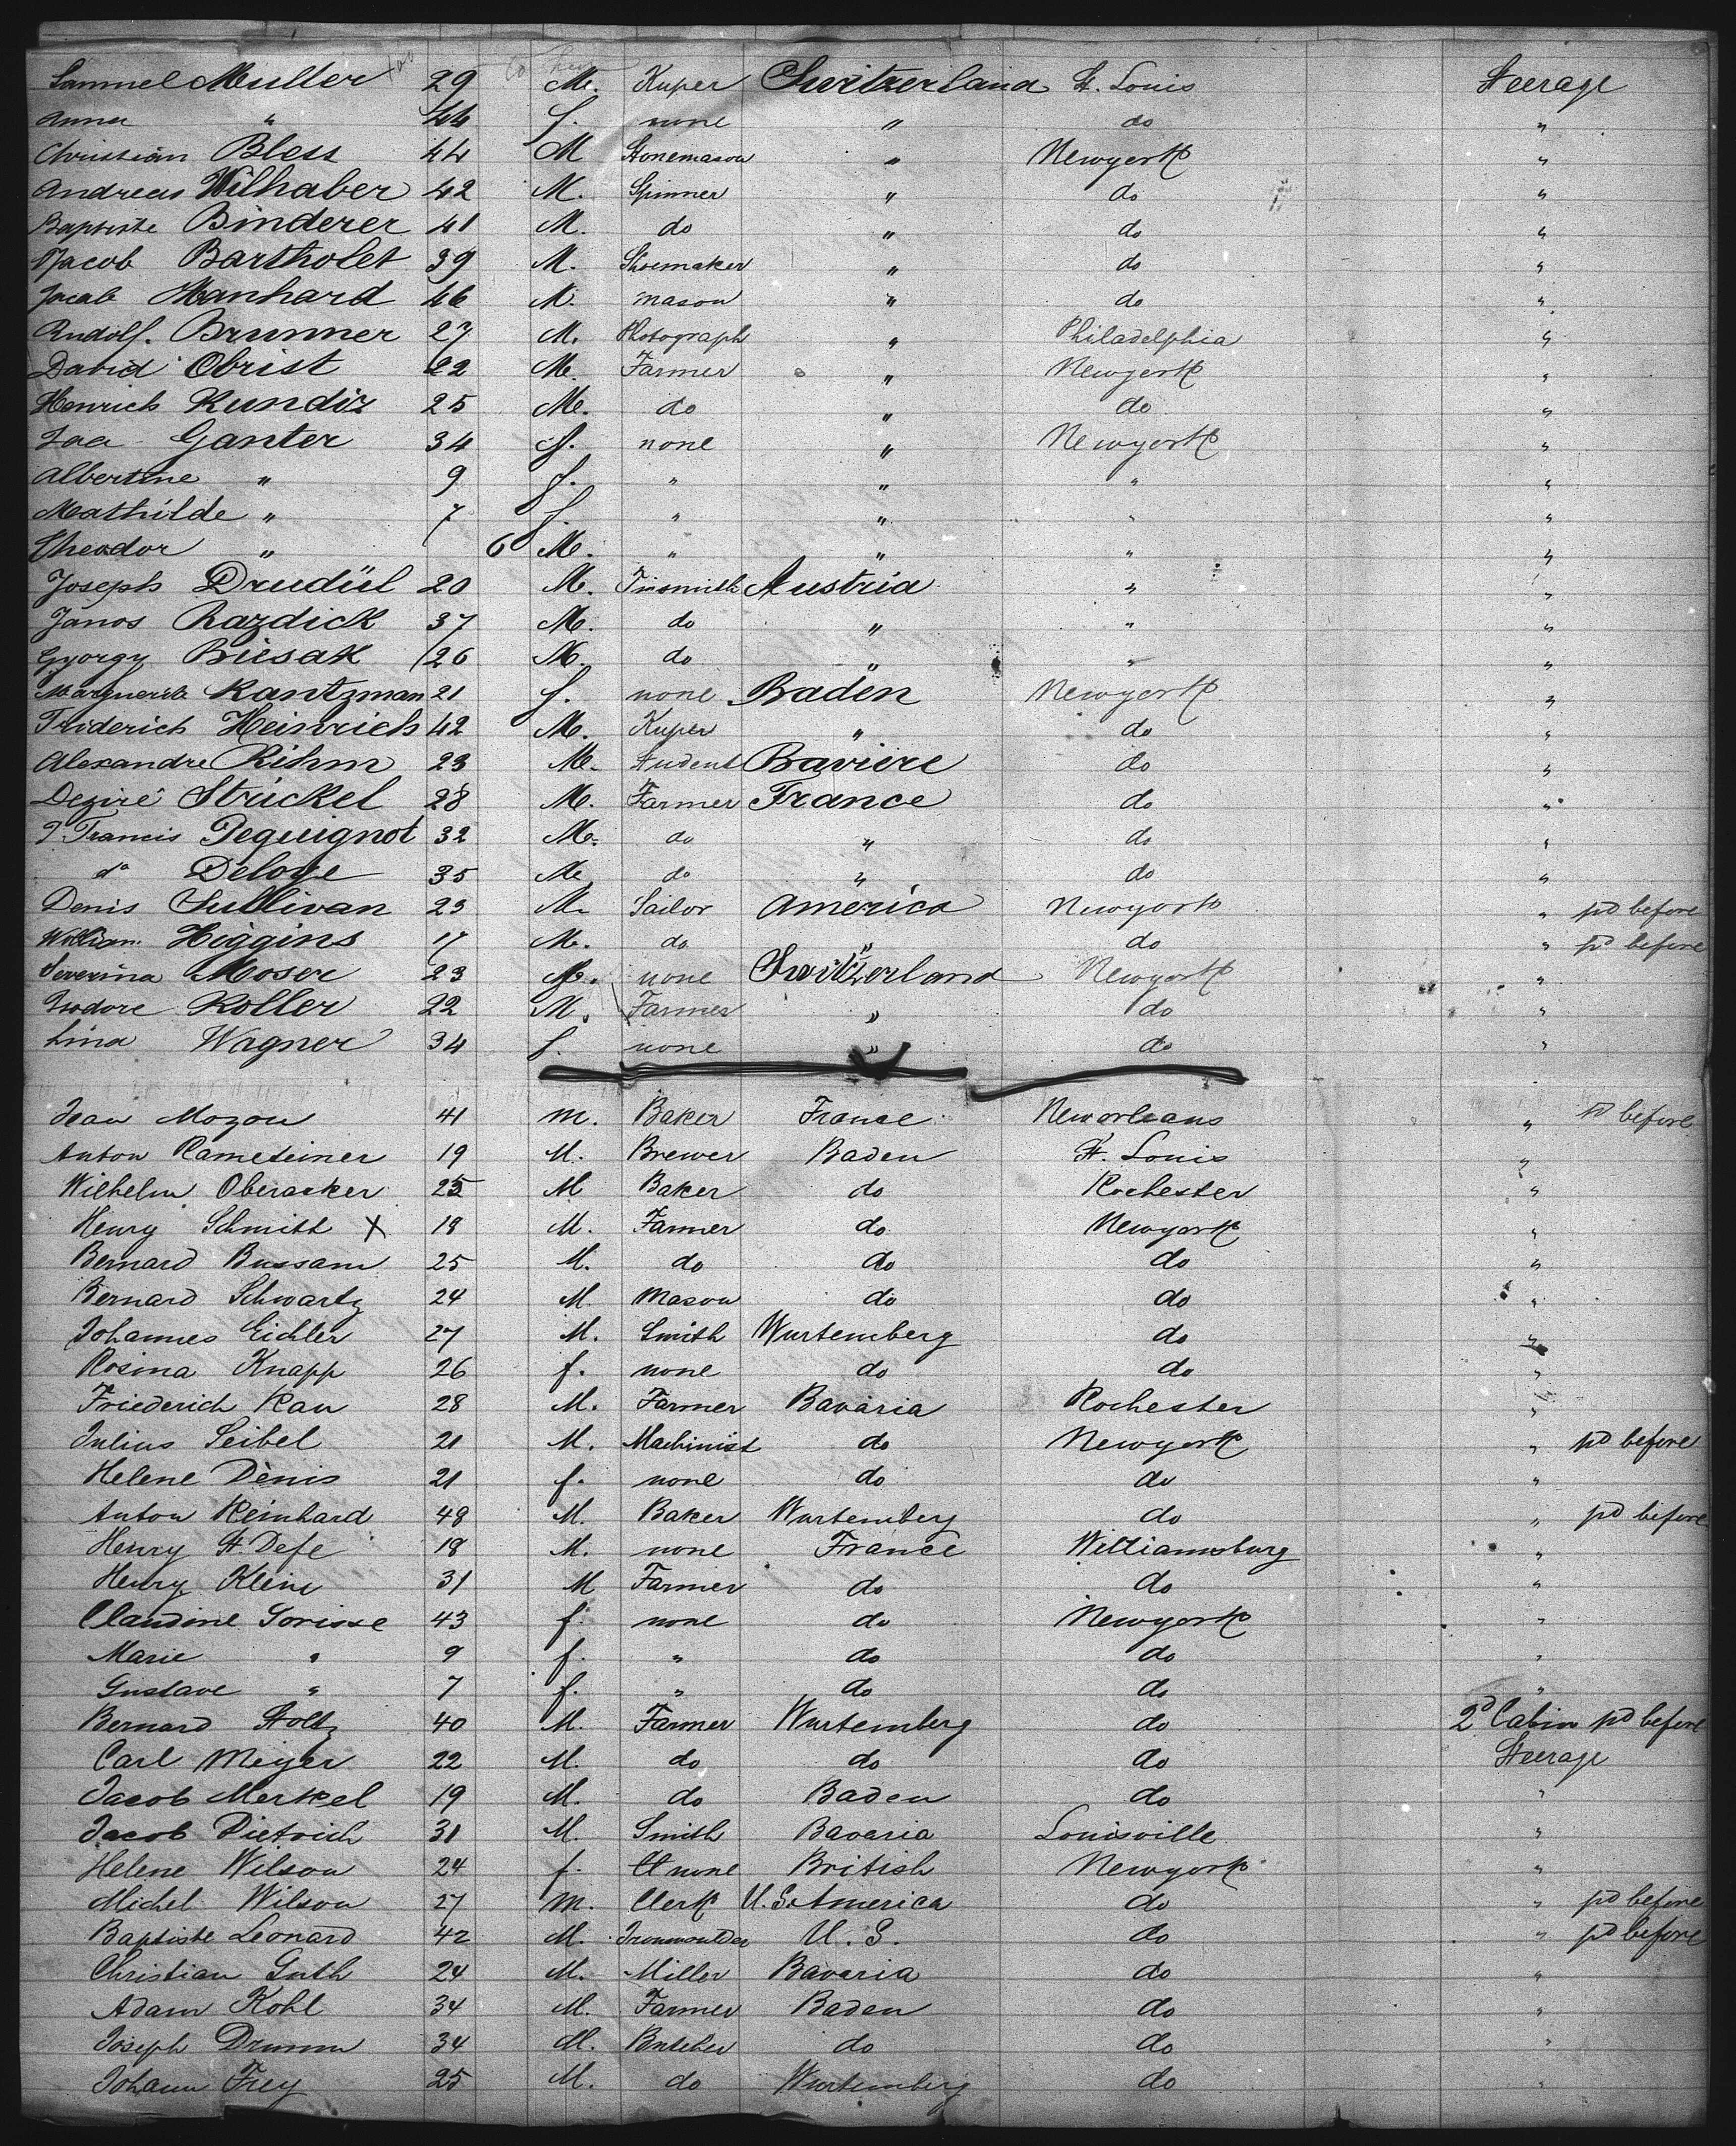 Samuel Muller 29 M. Kuper Switzerland St. Louis Steerage
Anna " 44 f. none " do "
Christian Bless 44 M Stonemason " Newyork "
Andreas Wilhaber 42 M. Spinner " do "
Baptiste Binderer 41 M. do " do "
Jacob Bartholet 39 M. Shoemaker " do "
Jacob Manhard 46 M. mason " do "
Rudolf. Brunner 27 M. Photograph " Philadelphia "
David Obrist 22 M. Farmer " Newyork "
Henrich Kundiz 25 M. do " do "
Ganter 34 f. none " Newyork "
Albertine " 9 f. " " " "
Mathilde " 7 f. " " " "
Theodor " 6 M. " " " "
Joseph Drudül 20 M. Tinsmith Austria " "
Janos Razdick 37 M. do " " "
Gyorgy Biesak 26 M. do " " "
Marguerite Kantzman 21 f. none Baden Newyork "
Friderich Heinrich 42 M. Kuper " do "
Alexandre Rihm 23 M. Student Baviere do "
Deziré Strickel 28 M. Farmer France do "
J. Francis Pequignot 32 M. do " do "
do Deloye 35 M. do " do "
Denis Sullivan 23 M. Sailor America Newyork " pd before
William Higgins 17 M. do " do " pd before
Severina Moser 23 none Switzerland Newyork "
Isodore Koller 22 M. Farmer " do "
Lina Wagner 34 f. none " do "
Jean Mozon 41 m. Baker France Neworleans " pd before
Anton Rameteiner 19 M. Brewer Baden St. Louis "
Wilhelm Oberacker 25 M Baker do Rochester "
Henry Schmitt X 18 M. Farmer do Newyork "
Bernard Bussam 25 M. do do do "
Bernard Schwartz 24 M. Mason do do "
Johannes Eichler 27 M. Smith Wurtemberg do "
Rosina Knapp 26 f. none do do "
Friederich Rau 28 M. Farmer Bavaria Rochester "
Julius Seibel 21 M. Machinist do Newyork " pd before
Helene Denis 21 f. none do do "
Anton Reinhard 48 M. Baker Wurtemberg do " pd before
Henry St. Defe 18 M. none France Williamsburg "
Henry Klein 31 M Farmer do do "
Claudine Sorisse 43 f. none do Newyork "
Marie " 9 f. " do do "
Gustave " 7 f. " do do "
Bernard Stoltz 40 M. Farmer Wurtemberg do 2d Cabin pd before
Carl Meyer 22 M. do do do Steerage
Jacob Merkel 19 M. do Baden do "
Jacob Dietrich 31 M. Smith Bavaria Louisville "
Helene Wilson 24 f. none British Newyork "
Michel Wilson 27 m. Clerk U.S. America do " pd before
Baptiste Leonard 42 M. Ironmoulder U.S. do " pd before
Christian Guth 24 M. Miller Bavaria do "
Adam Kohl 34 M. Farmer Baden do "
Joseph Drumm 34 M. Butcher do do "
Johann Frey 25 M. do Wurtemberg do "